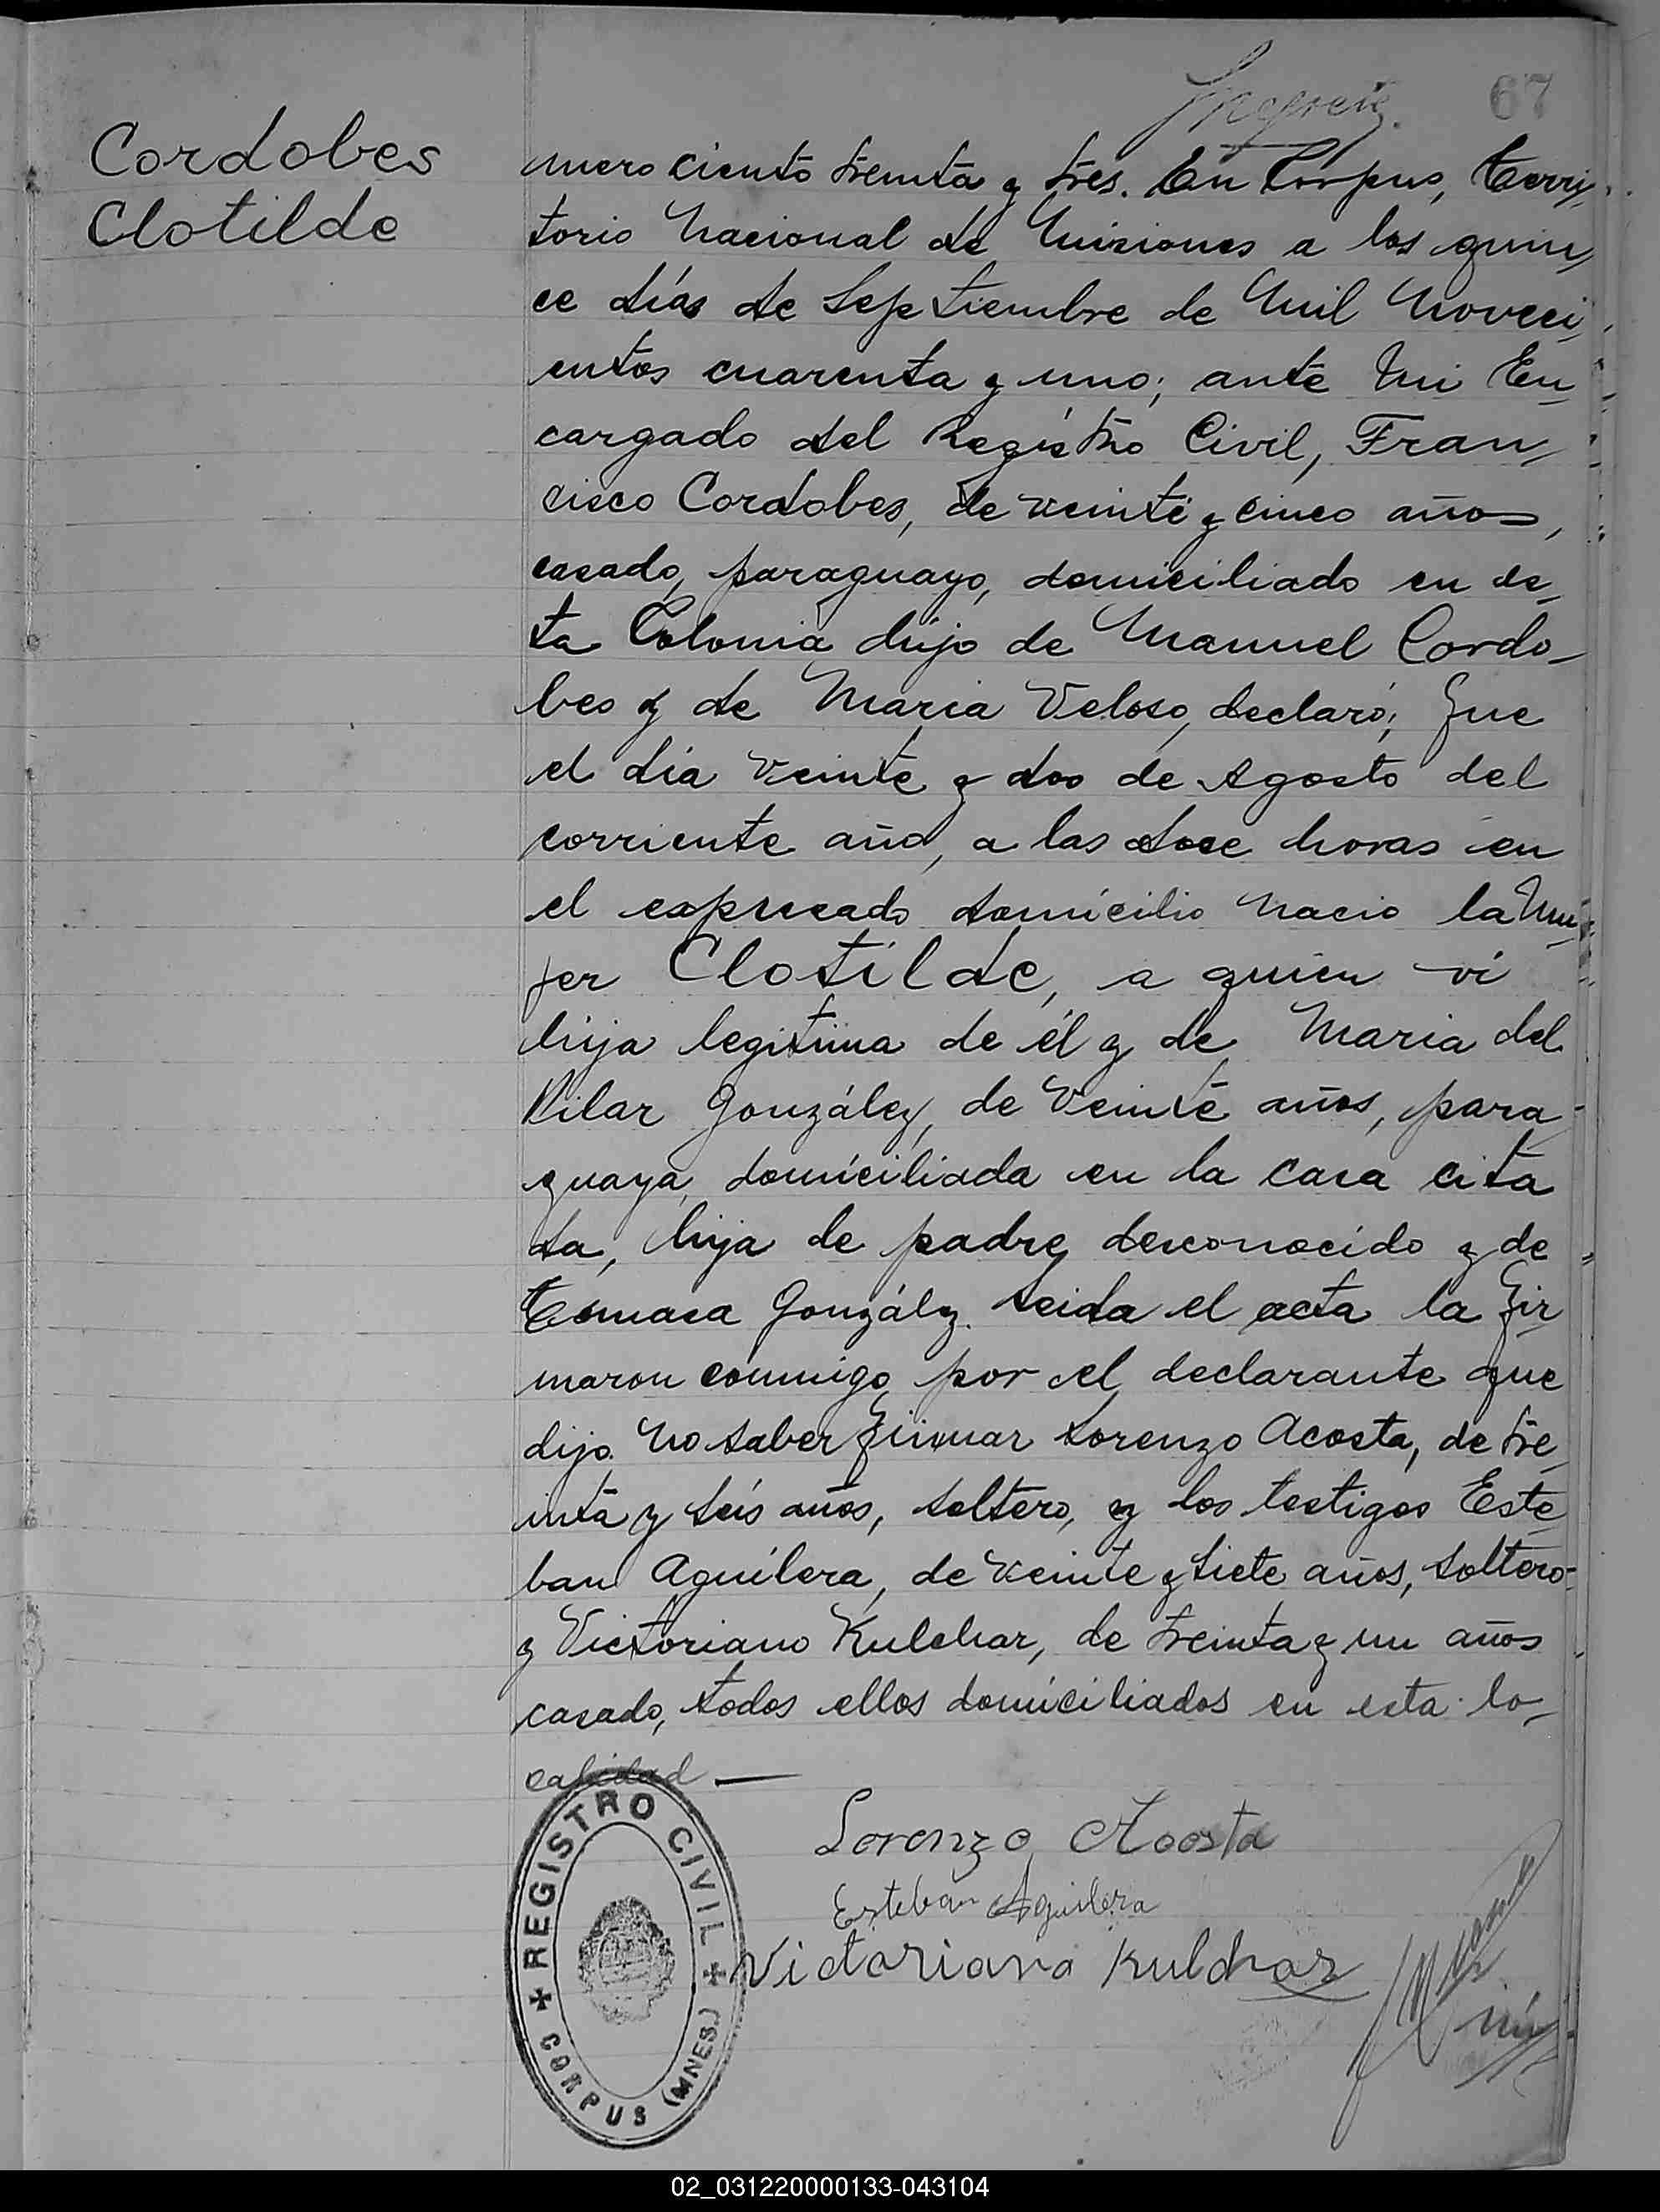 67
Cordobes
Clotilde
mero ciento treinta y tres. En Corpus, Terri
torio Nacional de Misiones a los quin
ce días de Septiembre de Mil Noveci
entos cuarenta y uno; ante Mi En
cargado del Registro Civil, Fran
cisco Cordobes, de veinte y cinco años,
casado, paraguayo, domiciliado en es
ta Colonia, hijo de Manuel Cordo-
bes y de Maria Veloso, declaró; Que
el día veinte y dos de Agosto del
corriente año, a las doce horas en
el expresado domicilio nacio la Mu
jer Clotilde, a quien vi
hija legitima de él y de Maria del
Pilar González, de Veinte años, para
guaya, domiciliada en la casa cita
da, hija de padre desconocido y de
Tomasa González. Leida el acta la fir
maron conmigo por el declarante que
dijo no saber firmar Lorenzo Acosta, de tre
inta y seis años, soltero, y los testigos Este
ban Aguilera, de veinte y siete años, soltero-
y Victoriano Kulchar, de treinta y un años
casado, todos ellos domiciliados en esta lo-
calidad —
Lorenzo Acosta
Esteban Aguilera
Victoriano Kulchar
REGISTRO CIVIL
CORPUS (MNES.)
02_031220000133-043104